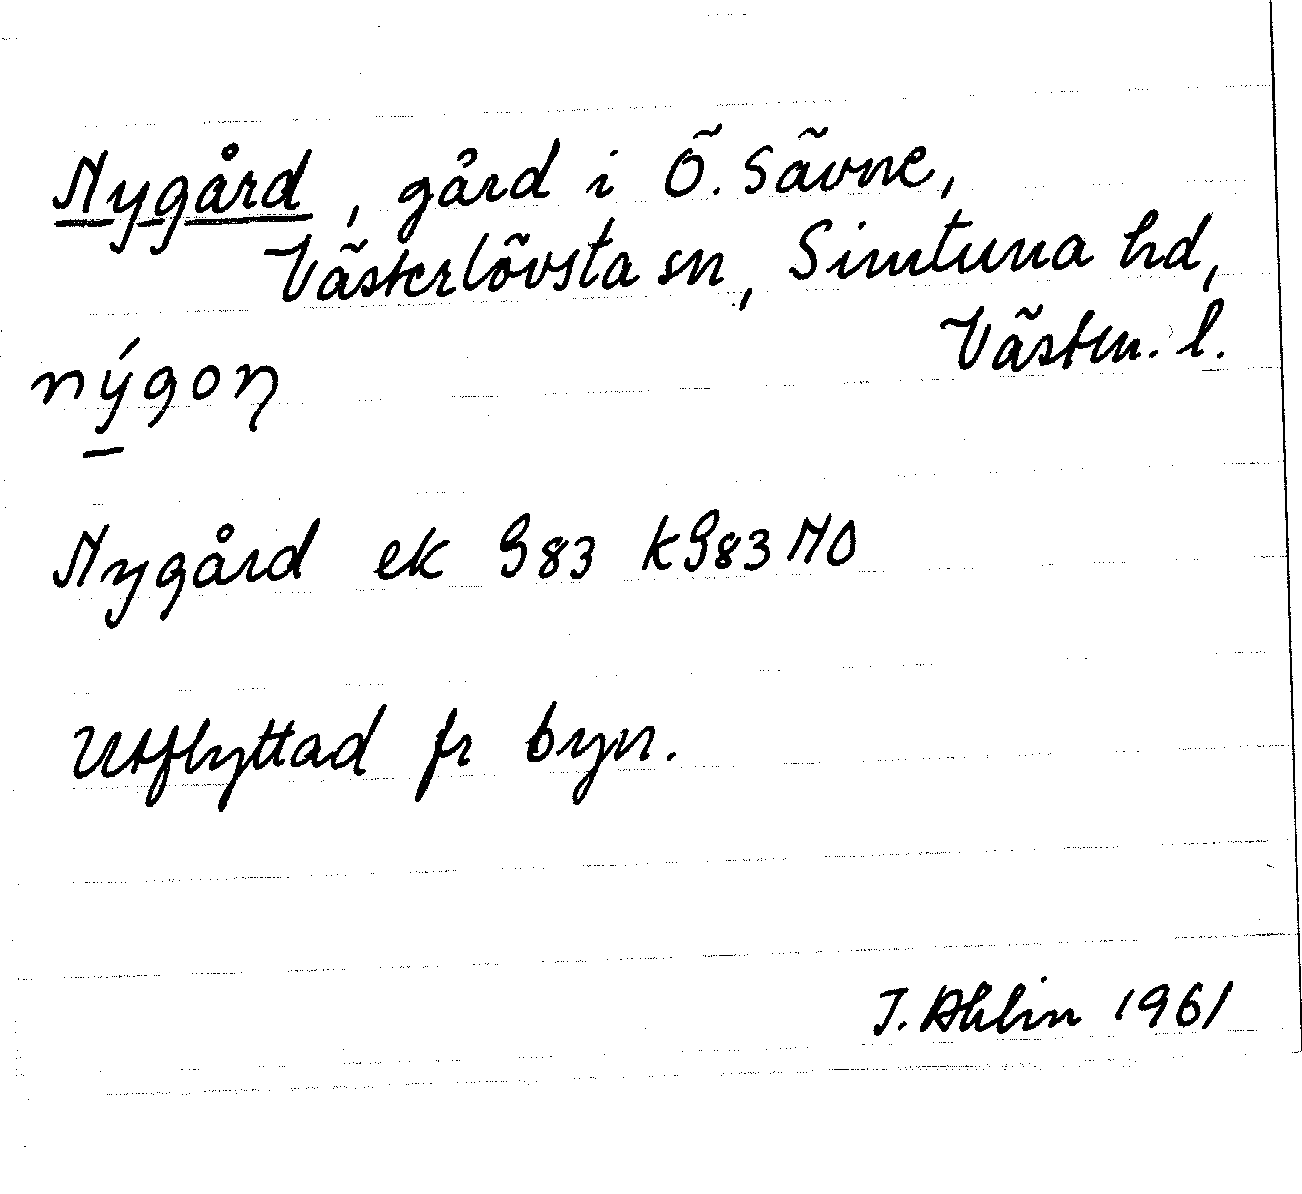 Nygård, gård i Ö. Sävne,
Västerlövsta sn, Simtuna hd,
Västm. l.
nýgoɳ
Nygård ek 983 k983 NO
Utflyttad fr byn.
J. Ahlin 1961